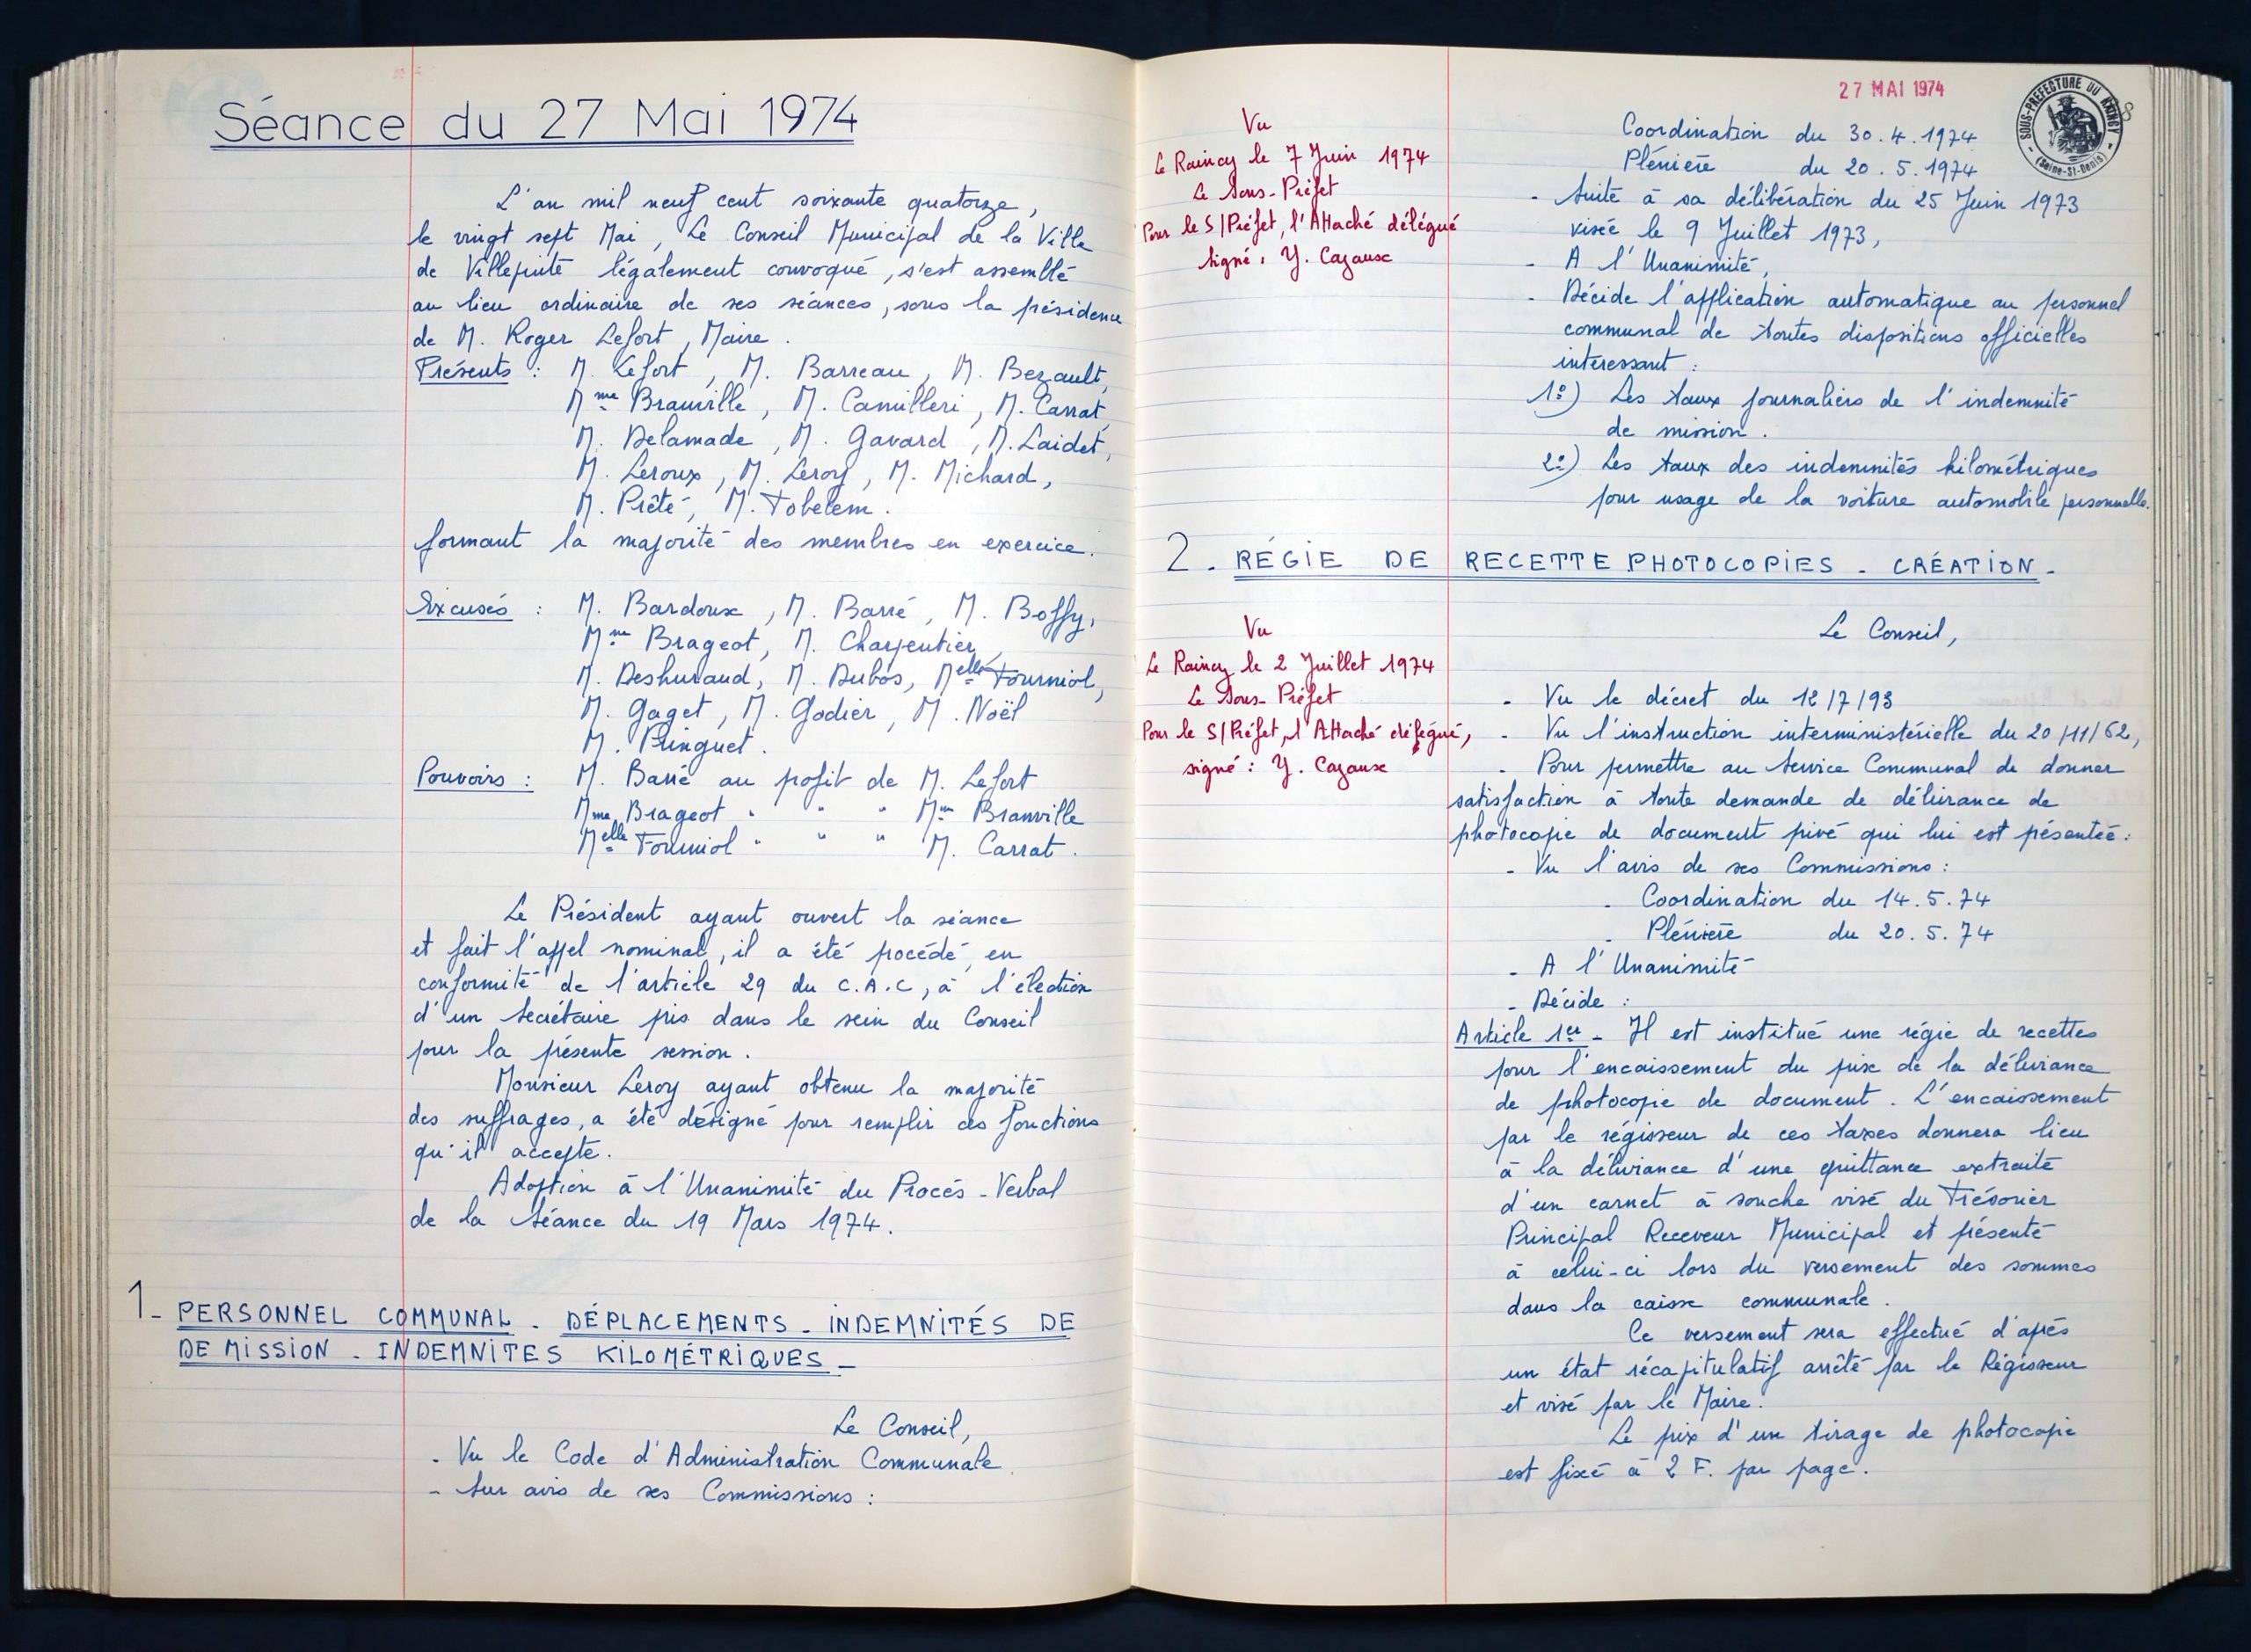 Séance du 27 Mai 1974
L'an mil neuf cent soixante quatorze,
le vingt sept Mai, Le Conseil Municipal de la Ville
de Villepinte légalement convoqué, s'est assemblé
au lieu ordinaire de ses séances, sous la présidence
de M. Roger Lefort, Maire.
Présents : M. Lefort, M. Barreau, M. Bezault,
Mme Branville, M. Camilleri, M. Carrat,
M. Delamade, M. Gavard, M. Laidet,
M. Leroux, M. Leroy, M. Michard,
M. Prêté, M. Tobelem.
formant la majorité des membres en exercice.
Excusés : M. Bardoux, M. Barré, M. Boffy,
Mme Brageot, M. Charpentier,
M. Deshuraud, M. Dubos, Melle Fourniol,
M. Gaget, M. Godier, M. Noël
M. Pringuet.
Pouvoirs : M. Barré au profit de M. Lefort
Mme Brageot " " " Mme Branville
Melle Fourniol " " " M. Carrat.
Le Président ayant ouvert la séance
et fait l'appel nominal, il a été procédé, en
conformité de l'article 29 du C.A.C, à l'élection
d'un Secrétaire pris dans le sein du Conseil
pour la présente session.
Monsieur Leroy ayant obtenu la majorité
des suffrages, a été désigné pour remplir ces fonctions
qu'il accepte.
Adoption à l'Unanimité du Procès-Verbal
de la Séance du 19 Mars 1974.
1_ PERSONNEL COMMUNAL . DÉPLACEMENTS . INDEMNITÉS DE
DE MISSION . INDEMNITES KILOMÉTRIQUES _
Le Conseil,
- Vu le Code d'Administration Communale
- Sur avis de ses Commissions :
27 MAI 1974
SOUS-PREFECTURE DU RAINCY
(Seine-St-Denis)
8
Vu
Le Raincy le 7 Juin 1974
Le Sous-Préfet
Pour le S/Préfet, l'Attaché délégué
Signé : Y. Cazaux
Coordination du 30.4.1974
Plénière du 20.5.1974
- Suite à sa délibération du 25 Juin 1973
visée le 9 Juillet 1973,
- A l'Unanimité,
- Décide l'application automatique au personnel
communal de toutes dispositions officielles
intéressant :
1º) Les taux journaliers de l'indemnité
de mission.
2º) Les taux des indemnités kilométriques
pour usage de la voiture automobile personnelle.
2. RÉGIE DE RECETTE PHOTOCOPIES _ CRÉATION _
Vu
Le Raincy le 2 Juillet 1974
Le Sous-Préfet
Pour le S/Préfet, l'Attaché délégué,
signé : Y. Cazaux
Le Conseil,
- Vu le décret du 12/7/93
- Vu l'instruction interministérielle du 20/11/62,
- Pour permettre au Service Communal de donner
satisfaction à toute demande de délivrance de
photocopie de document privé qui lui est présentée :
- Vu l'avis de ses Commissions :
. Coordination du 14.5.74
. Plénière du 20.5.74
- A l'Unanimité
- Décide :
Article 1er - Il est institué une régie de recettes
pour l'encaissement du prix de la délivrance
de photocopie de document. L'encaissement
par le régisseur de ces taxes donnera lieu
à la délivrance d'une quittance extraite
d'un carnet à souche visé du Trésorier
Principal Receveur Municipal et présenté
à celui-ci lors du versement des sommes
dans la caisse communale.
Ce versement sera effectué d'après
un état récapitulatif arrêté par le Régisseur
et visé par le Maire.
Le prix d'un tirage de photocopie
est fixé à 2 F. par page.